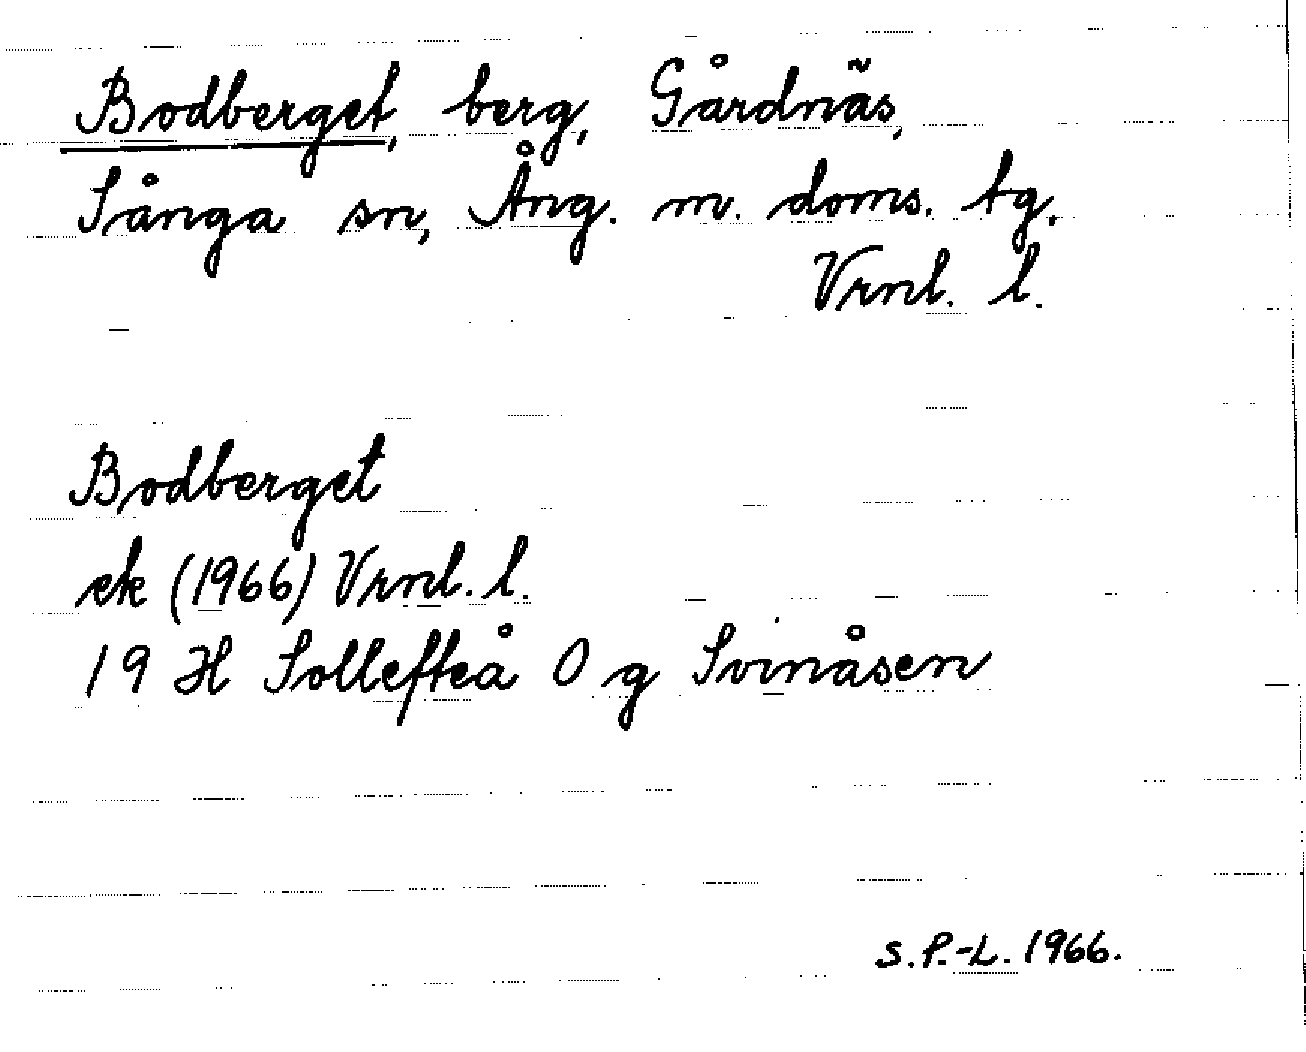 Bodberget, berg, Gårdnäs,
Sånga sn, Ång. m. doms. tg.
Vrnl. l.
Bodberget
ek (1966) Vrnl. l.
19 H Sollefteå O g Svinåsen
S.P.-L. 1966.